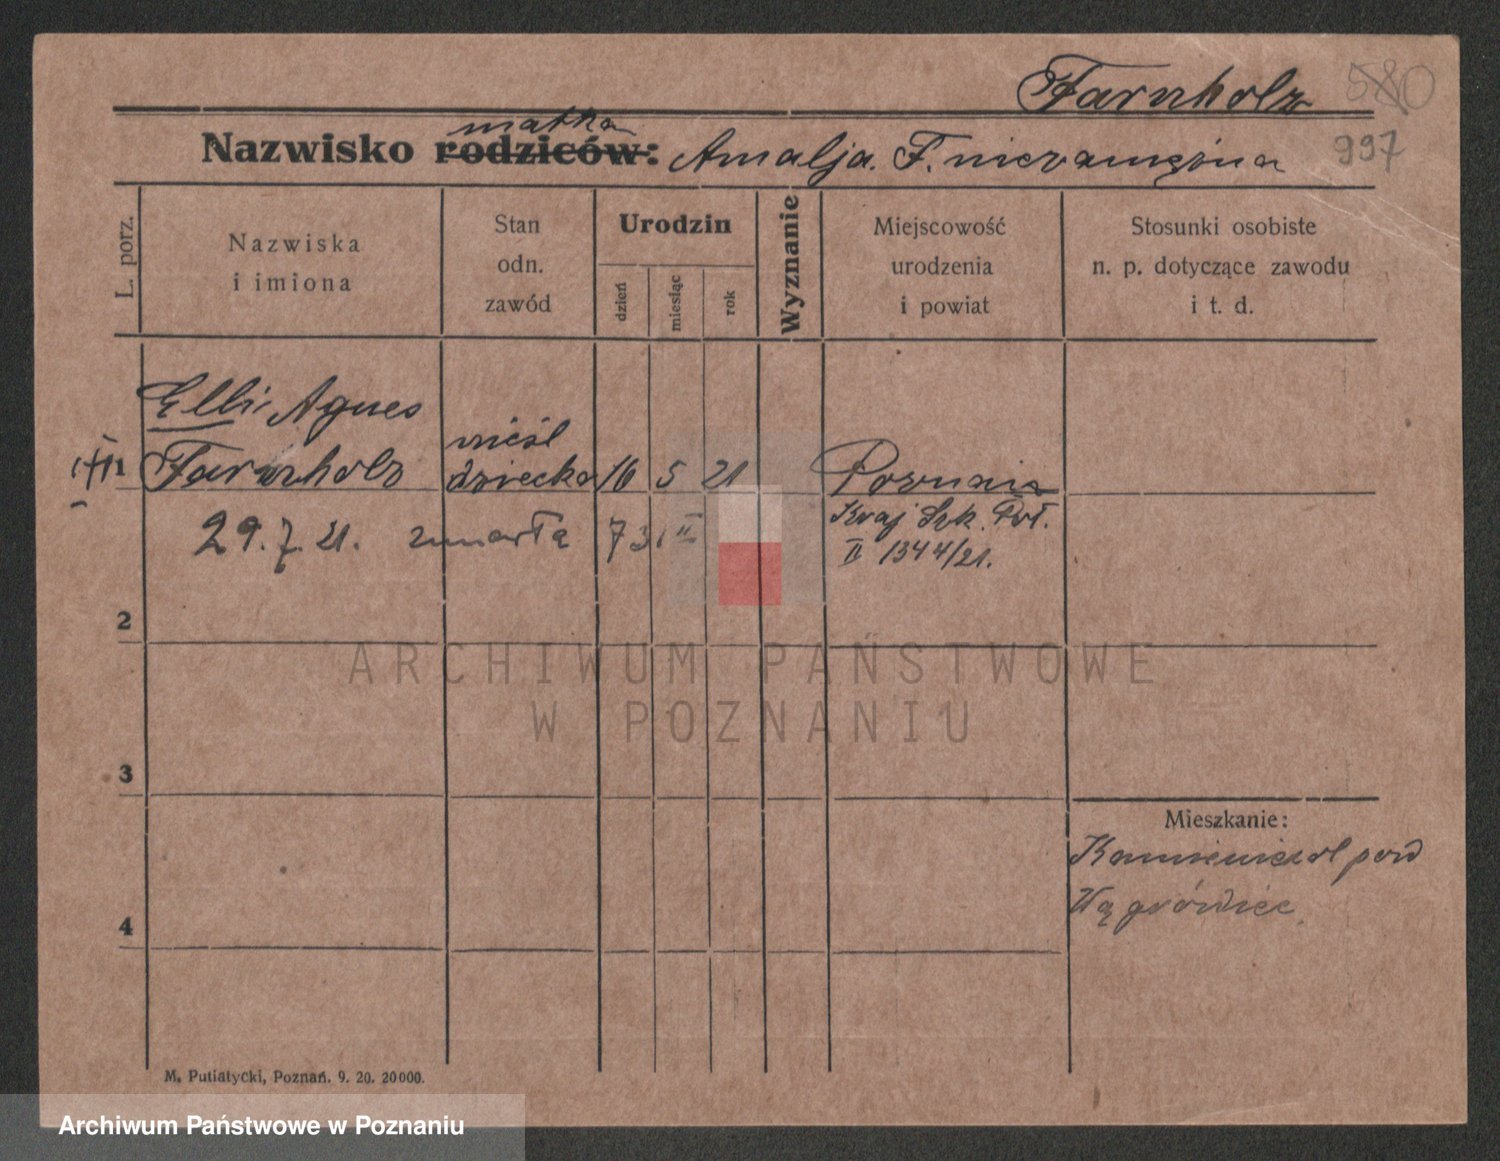 Farnholz
580
997
matka
Nazwisko rodziców: Amalja. F. niezamężna
L. porz.
Nazwiska
i imiona
Stan
odn.
zawód
Urodzin
dzień
miesiąc
rok
Wyznanie
Miejscowość
urodzenia
i powiat
Stosunki osobiste
n. p. dotyczące zawodu
i t. d.
Elli Agnes
Farnholz
nieśl
dziecko
16 5 21
Poznań
1
29. 7. 21. zmarła
Kraj Szk. Poł.
II 1344/21.
2
ARCHIWUM PAŃSTWOWE
W POZNANIU
3
Mieszkanie:
pow
Wągrówiec
4
M. Putiatycki, Poznań. 9. 20. 20000.
Archiwum Państwowe w Poznaniu